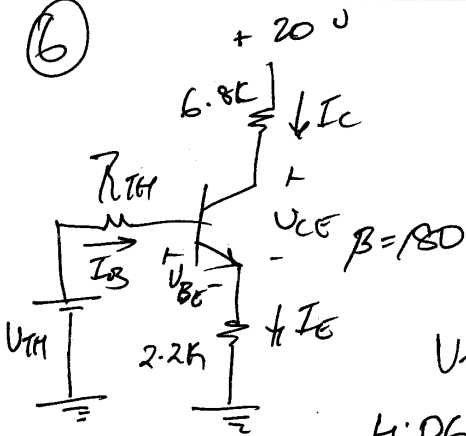 6
+ 20 V
6.8K
↓ IC
RTH
+
VCE
-
β = 180
IB
+
VBE-
VTH
2.2K
↓ IE
V
4.06